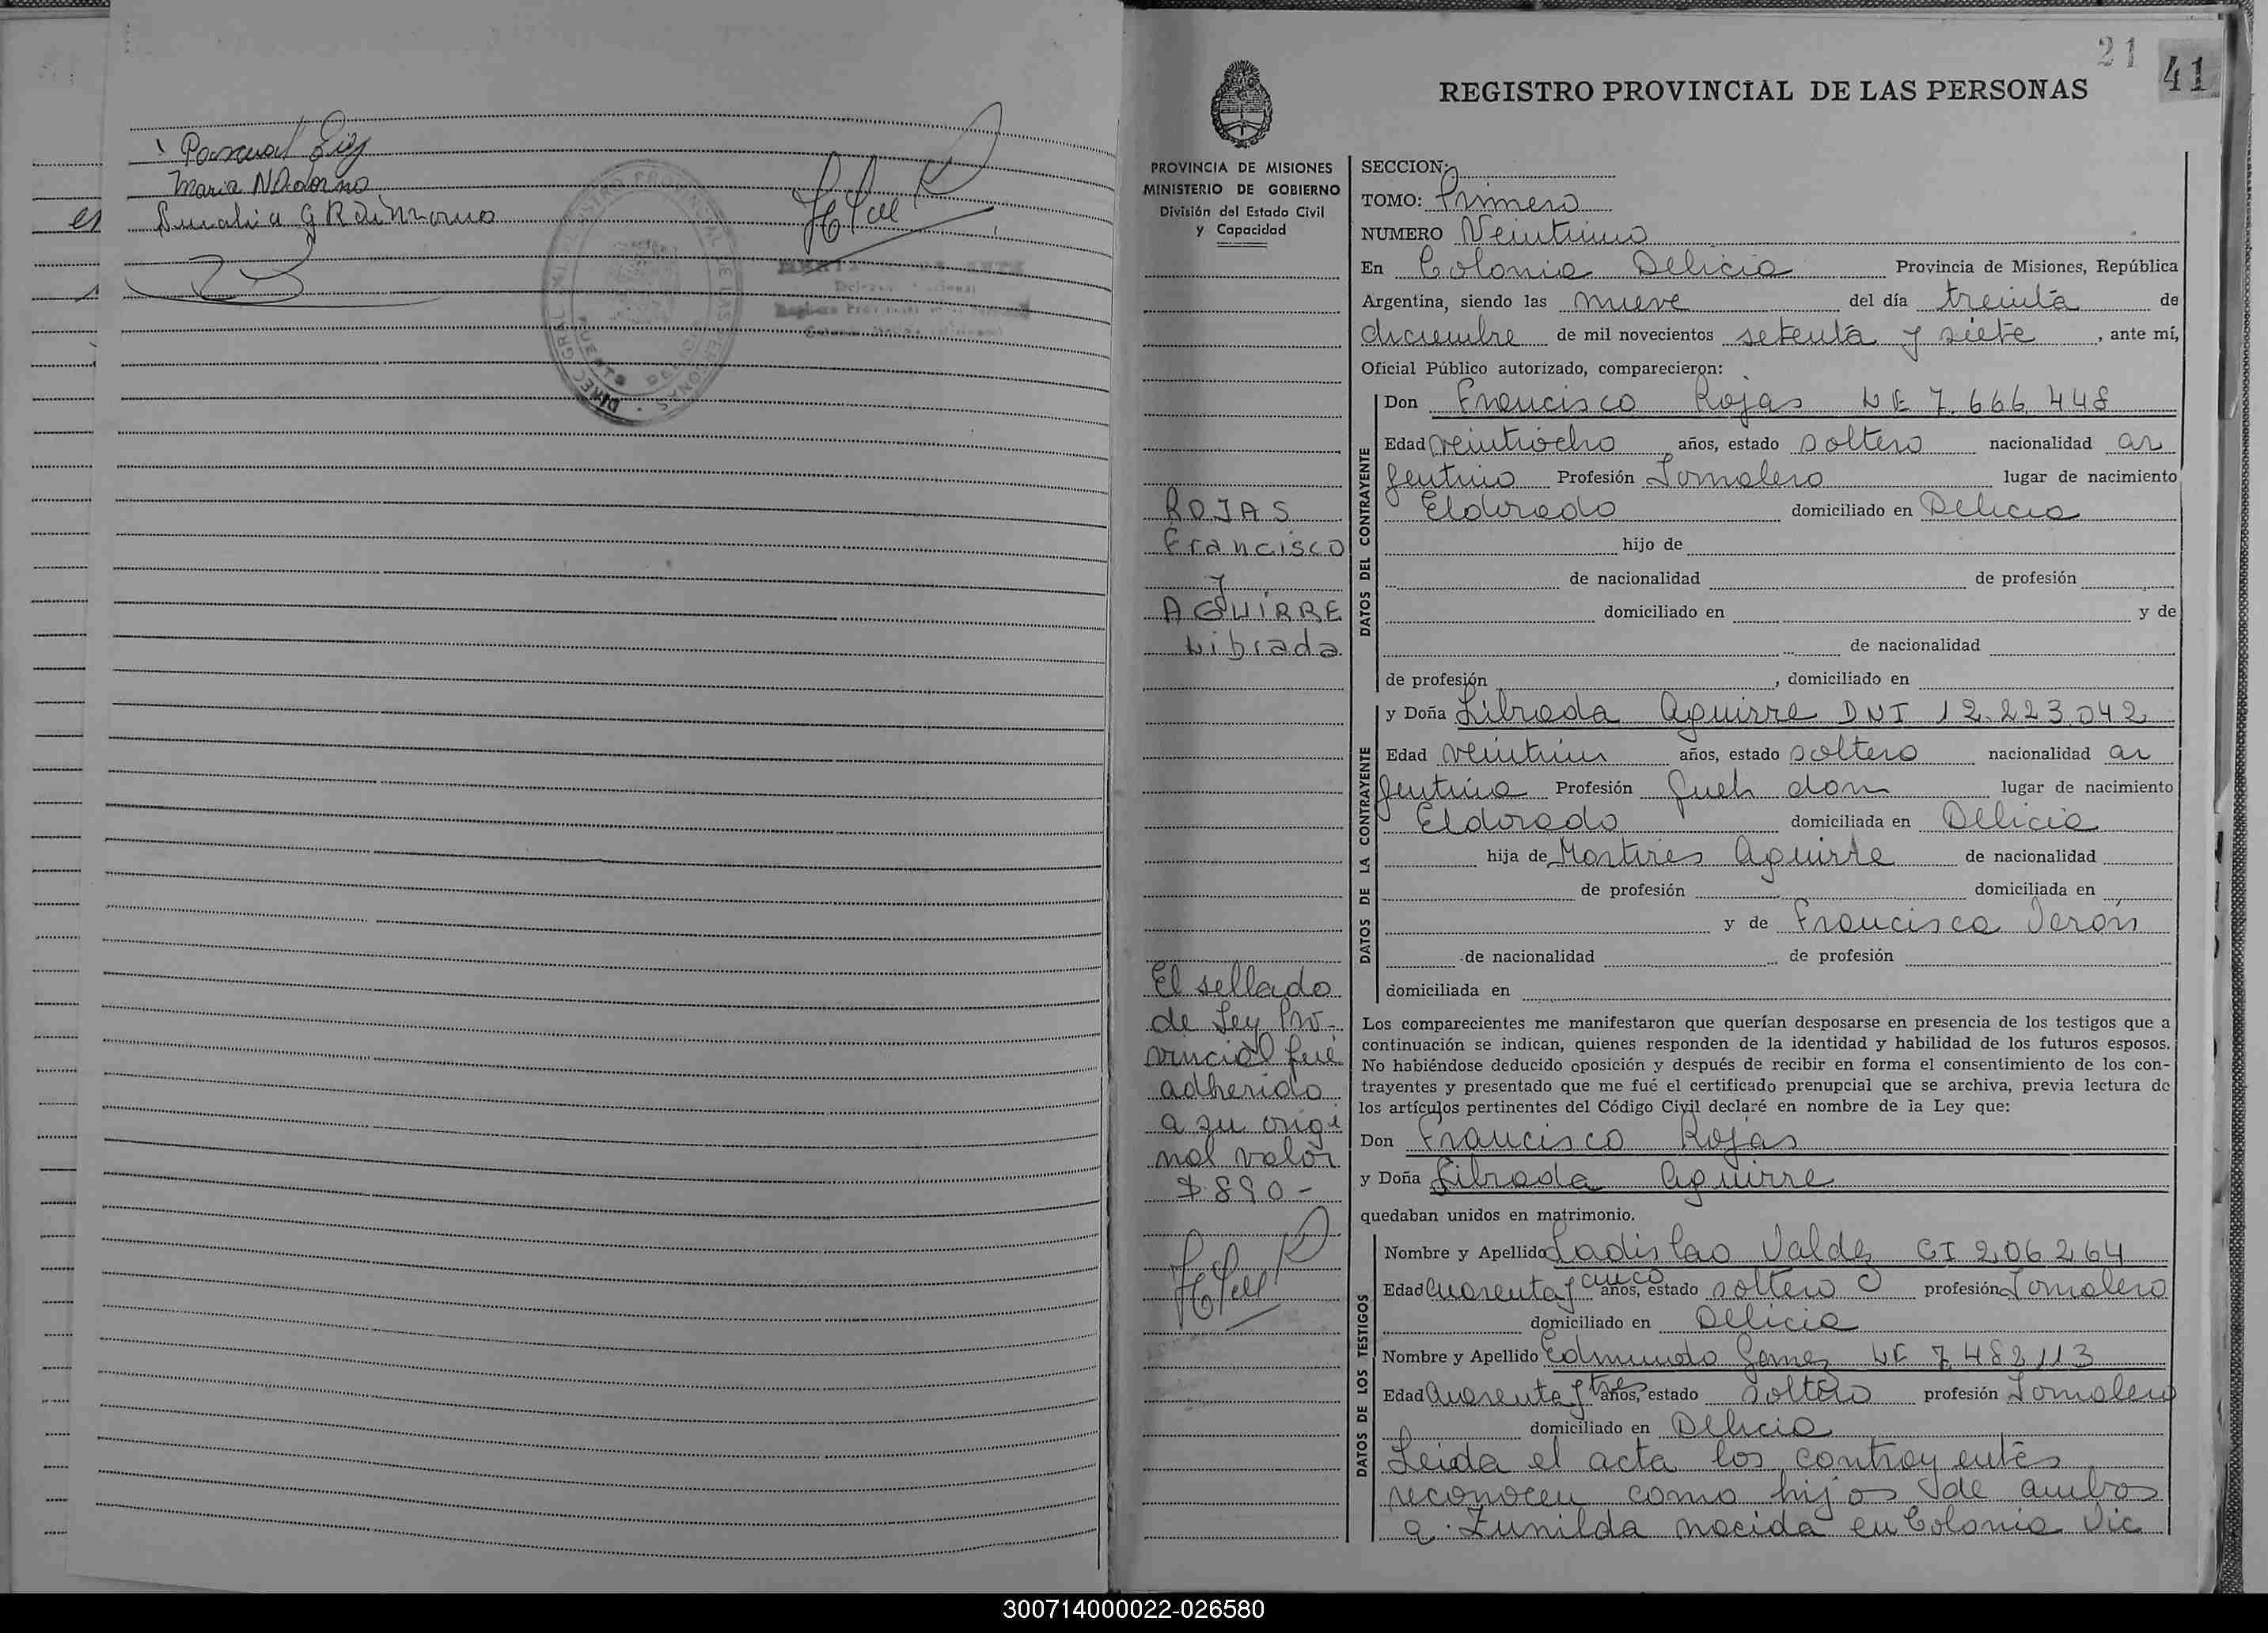 Pascual
Maria N Adorno
DIREC. GRAL.
21
41
REGISTRO PROVINCIAL DE LAS PERSONAS
PROVINCIA DE MISIONES
MINISTERIO DE GOBIERNO
División del Estado Civil
y Capacidad
ROJAS
Francisco
y
AGUIRRE
Librada
El sellado
de Ley Pro-
vincial fué
adherido
a su origi
nal valor
$ 890-
SECCION:
TOMO: Primero
NUMERO Veintiuno
En Colonia Delicia Provincia de Misiones, República
Argentina, siendo las nueve del día treinta de
diciembre de mil novecientos setenta y siete, ante mí,
Oficial Público autorizado, comparecieron:
DATOS DEL CONTRAYENTE
Don Francisco Rojas LE 7.666.448
Edad veintiocho años, estado soltero nacionalidad ar
gentino Profesión Jornalero lugar de nacimiento
Eldorado domiciliado en Delicia
hijo de
de nacionalidad de profesión
domiciliado en y de
de nacionalidad
de profesión , domiciliado en
DATOS DE LA CONTRAYENTE
y Doña Librada Aguirre DNI 12.223.042
Edad veintiun años, estado soltera nacionalidad ar
gentina Profesión queh dom lugar de nacimiento
Eldorado domiciliada en Delicia
hija de Martires Aguirre de nacionalidad
de profesión domiciliada en
y de Francisca Verón
de nacionalidad de profesión
domiciliada en
Los comparecientes me manifestaron que querían desposarse en presencia de los testigos que a
continuación se indican, quienes responden de la identidad y habilidad de los futuros esposos.
No habiéndose deducido oposición y después de recibir en forma el consentimiento de los con-
trayentes y presentado que me fué el certificado prenupcial que se archiva, previa lectura de
los artículos pertinentes del Código Civil declaré en nombre de la Ley que:
Don Francisco Rojas
y Doña Librada Aguirre
quedaban unidos en matrimonio.
DATOS DE LOS TESTIGOS
Nombre y Apellido Ladislao Valdez CI 206264
Edad cuarenta y cinco años, estado soltero profesión Jornalero
domiciliado en Delicia
Nombre y Apellido Edmundo Gomez LE 7.482113
Edad cuarenta y tres años, estado soltero profesión Jornalero
domiciliado en Delicia
Leida el acta los contrayentes
reconocen como hijos de ambos
a: Zunilda nacida en Colonia Vic
300714000022-026580